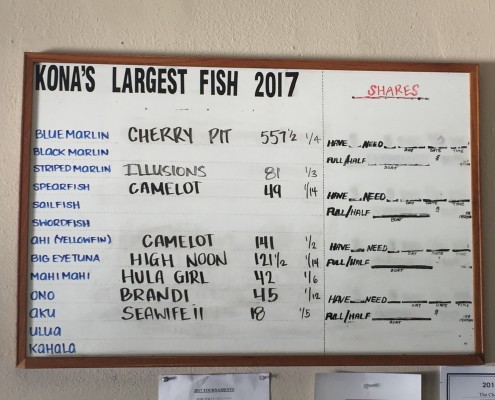 KONA'S LARGEST FISH 2017
SHARES
BLUE MARLIN CHERRY PIT 557 1/2 1/4
BLACK MARLIN
STRIPED MARLIN ILLUSIONS 81 1/3
SPEARFISH CAMELOT 49 1/14
SAILFISH
SWORDFISH
AHI (YELLOWFIN) CAMELOT 141 1/2
BIG EYE TUNA HIGH NOON 121 1/2 1/14
MAHI MAHI HULA GIRL 42 1/6
ONO BRANDI 45 1/12
AKU SEAWIFE II 18 1/5
ULUA
KAHALA
HAVE NEED
FULL/HALF $
BOAT
HAVE NEED
DAY DATE TIME
FULL/HALF
BOAT
HAVE NEED
DAY DATE TIME
FULL/HALF
BOAT
HAVE NEED
DAY DATE TIME
FULL/HALF
BOAT
2017 TOURNAMENTS
201